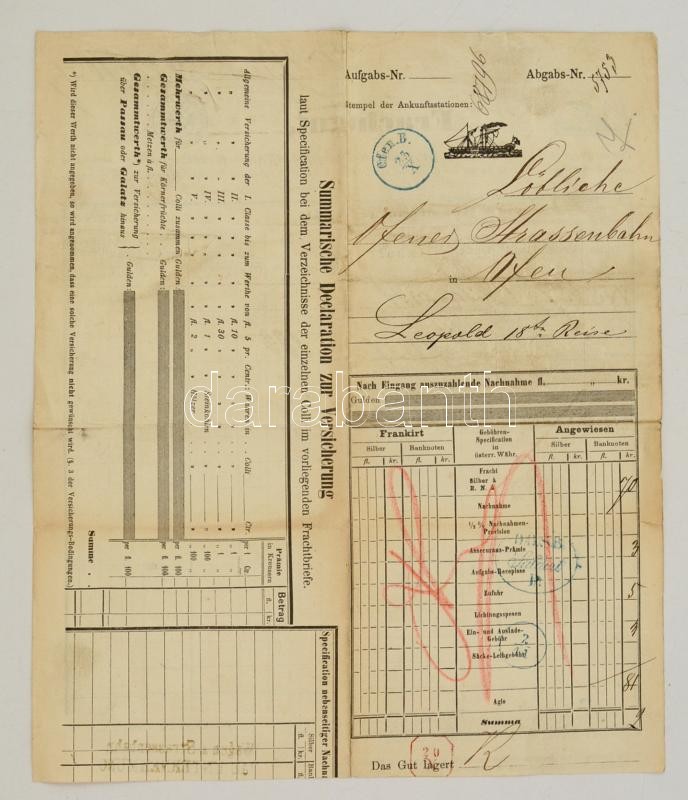 Aufgabs-Nr.
Abgabs-Nr. 5753
Stempel der Ankunftsstationen:
Ofen B.
Löbliche
Ofener Strassenbahn
in
Ofen
Leopold 18te Reise
Nach Eingang auszuzahlende Nachnahme fl. „ kr.
Gulden
Frankirt
Gebühren-Specification in österr. Währ.
Angewiesen
Silber Banknoten
Silber Banknoten
fl. kr. fl. kr.
fl. kr. fl. kr.
Fracht
Silber à
B. N. à
70
Nachnahme
½% Nachnahmen-Provision
Assecuranz-Prämie
3
Aufgabs-Recepisse
Zufuhr
5
Lichtungsspesen
Ein- und Auslade-Gebühr
3
Säcke-Leihgebühr
81
Agio
Summa
Das Gut lagert
20
Summarische Declaration zur Versicherung
laut Specification bei dem Verzeichnisse der einzelnen Colli im vorliegenden Frachtbriefe.
Prämie in Kreuzern
Betrag
fl. kr.
Allgemeine Versicherung der I. Classe bis zum Werthe von fl. 5 pr. Centr.: Waaren in Colli Ctr. per 1 Ctr.
„ „ „ II. „ „ „ „ fl. 10 „
„ „ „ III. „ „ „ „ fl. 30 „
„ „ „ IV. „ „ „ „ fl. 1 „
„ „ „ V. „ „ „ „ fl. 2 „
Mehrwerth für Colli zusammen Gulden: per fl. 100
Gesammtwerth für Körnerfrüchte, Gulden: per fl. 100
Metzen à fl.
Gesammtwerth*) zur Versicherung
über Passau oder Galatz hinaus
Gulden: per fl. 100
Summe . .
*) Wird dieser Werth nicht angegeben, so wird angenommen, dass eine solche Versicherung nicht gewünscht wird. (§. 3 der Versicherungs-Bedingungen.)
Specification nebenseitiger Nachna
Silber
fl. kr.
Bank
fl.
darabanth